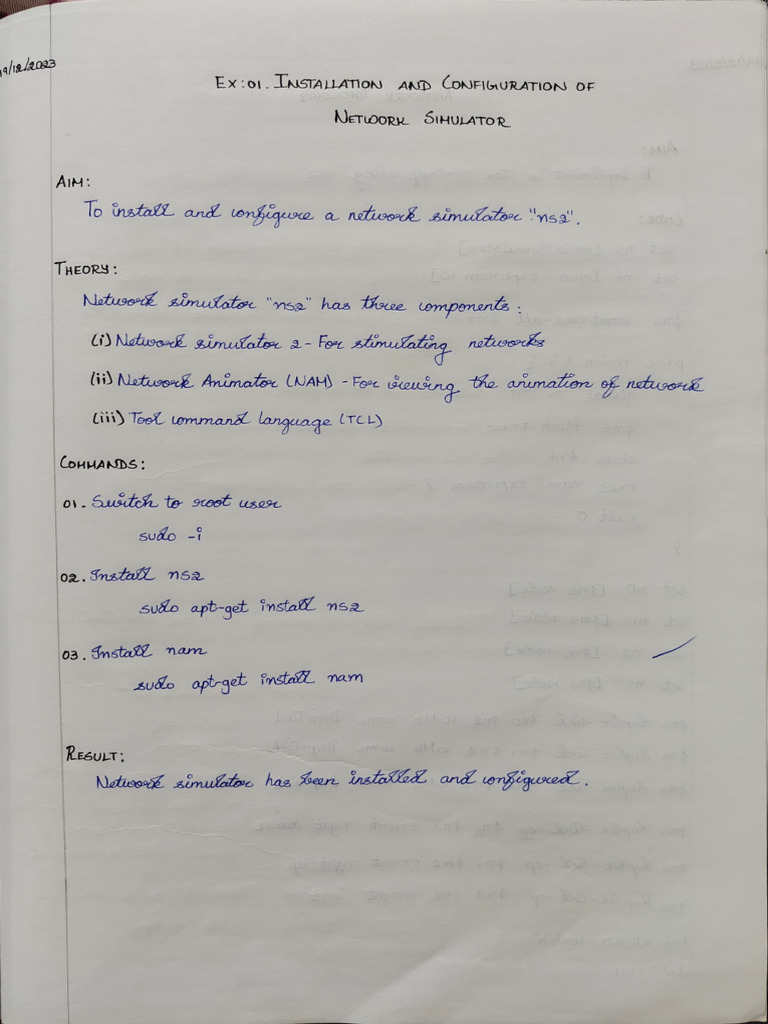 19/12/2023
EX:01. INSTALLATION AND CONFIGURATION OF
NETWORK SIMULATOR
AIM:
To install and configure a network simulator "ns2".
THEORY:
Network simulator "ns2" has three components:
(i) Network simulator 2 - For stimulating networks
(ii) Network Animator (NAM) - For viewing the animation of network
(iii) Tool command language (TCL)
COMMANDS:
01. Switch to root user
sudo -i
02. Install ns2
sudo apt-get install ns2
03. Install nam
sudo apt-get install nam
RESULT:
Network simulator has been installed and configured.